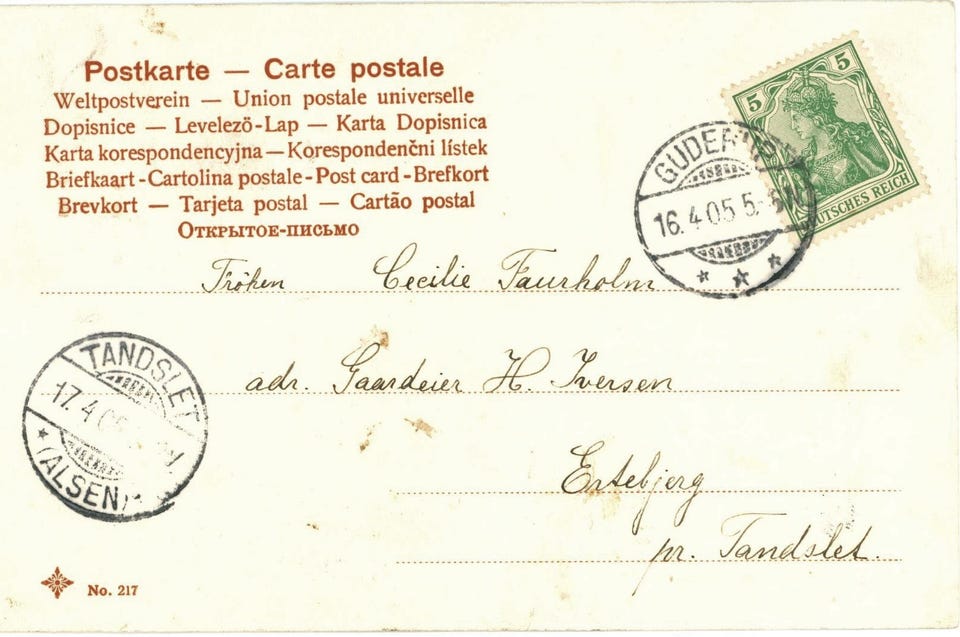 Postkarte — Carte postale
Weltpostverein — Union postale universelle
Dopisnice — Levelezö-Lap — Karta Dopisnica
Karta korespondencyjna — Korespondenčni lístek
Briefkaart - Cartolina postale - Post card - Brefkort
Brevkort — Tarjeta postal — Cartão postal
Открытое-письмо
5 5
DEUTSCHES REICH
16.4.05 5-
Fröken Cecilie Faurholm
adr. Gaardeier H. Iversen
Ertebjerg
pr. Tandslet.
TANDSLET
17.4.05
(ALSEN)
No. 217